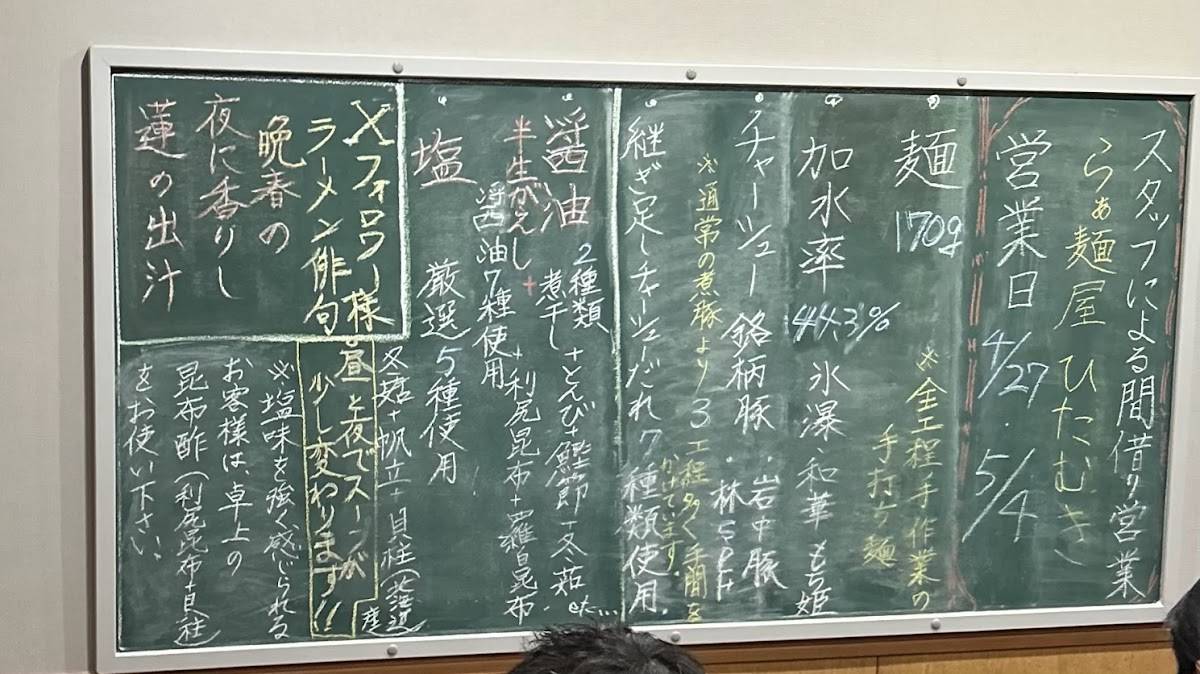 スタッフによる間借り営業
らぁ麺屋 ひたむき
営業日 4/27・5/4
麺 170g
※全工程手作業の
手打ち麺
加水率 44.3% 氷瀑・和華・もち姫
チャーシュー 銘柄豚・岩中豚
・林SPF
※通常の煮豚より3工程多く手間を
かけています。
継ぎ足しチャーシューだれ7種類使用。
醤油 2種類
煮干し+とんび+鰹節+冬菇 etc...
半生がえし+
醤油7種使用
+利尻昆布+羅臼昆布
塩 厳選5種使用
冬菇+帆立+貝柱(北海道産)
Xフォロワー様
ラーメン俳句
晩春の
夜に香りし
蓮の出汁
昼と夜でスープが
少し変わります!!
※塩味を強く感じられる
お客様は、卓上の
昆布酢(利尻昆布+貝柱)
をお使い下さい。